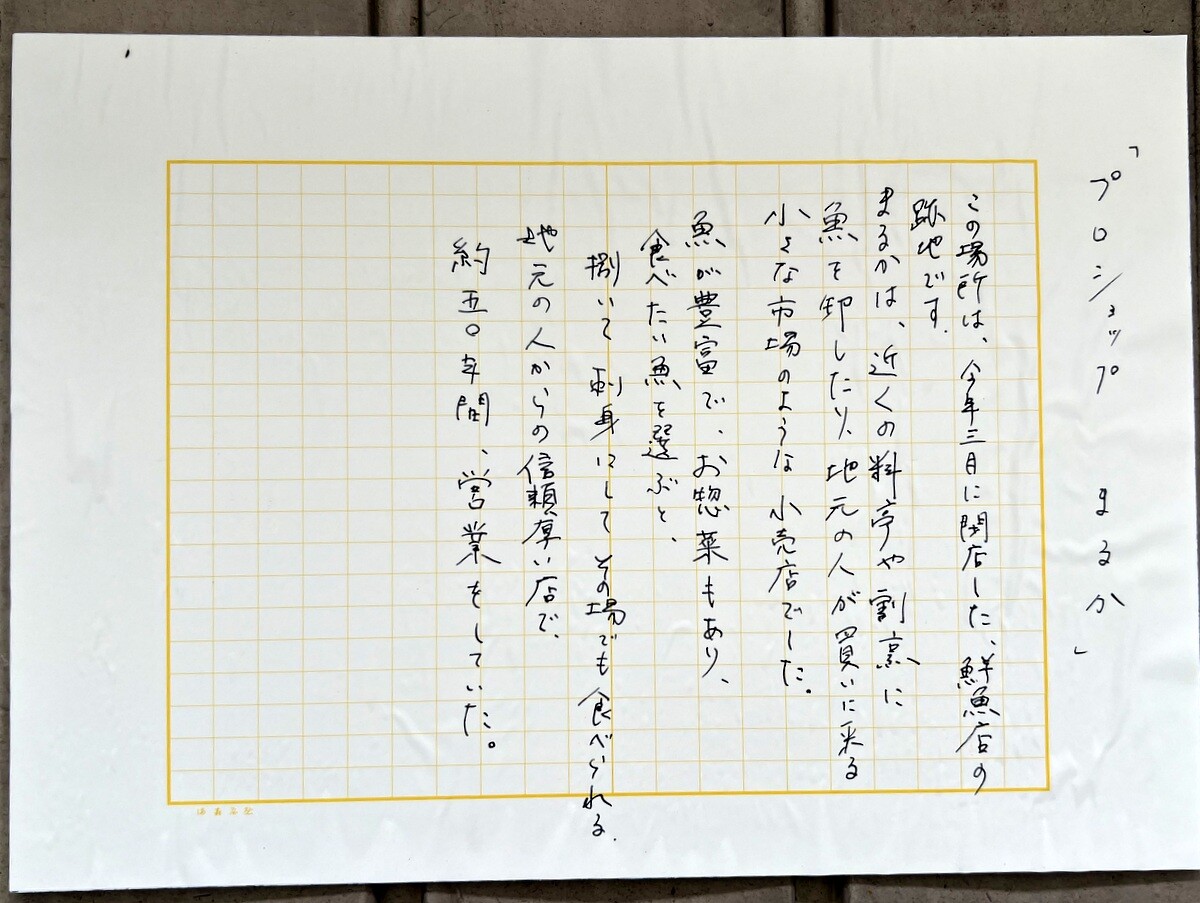 「プロショップ まるか」
この場所は、今年三月に閉店した、鮮魚店の
跡地です.
まるかは、近くの料亭や割烹に
魚を卸したり、地元の人が買いに来る
小さな市場のような小売店でした。
魚が豊富で、お惣菜もあり、
食べたい魚を選ぶと、
捌いて刺身にしてその場でも食べられる.
地元の人からの信頼厚い店で、
約五〇年間、営業をしていた。